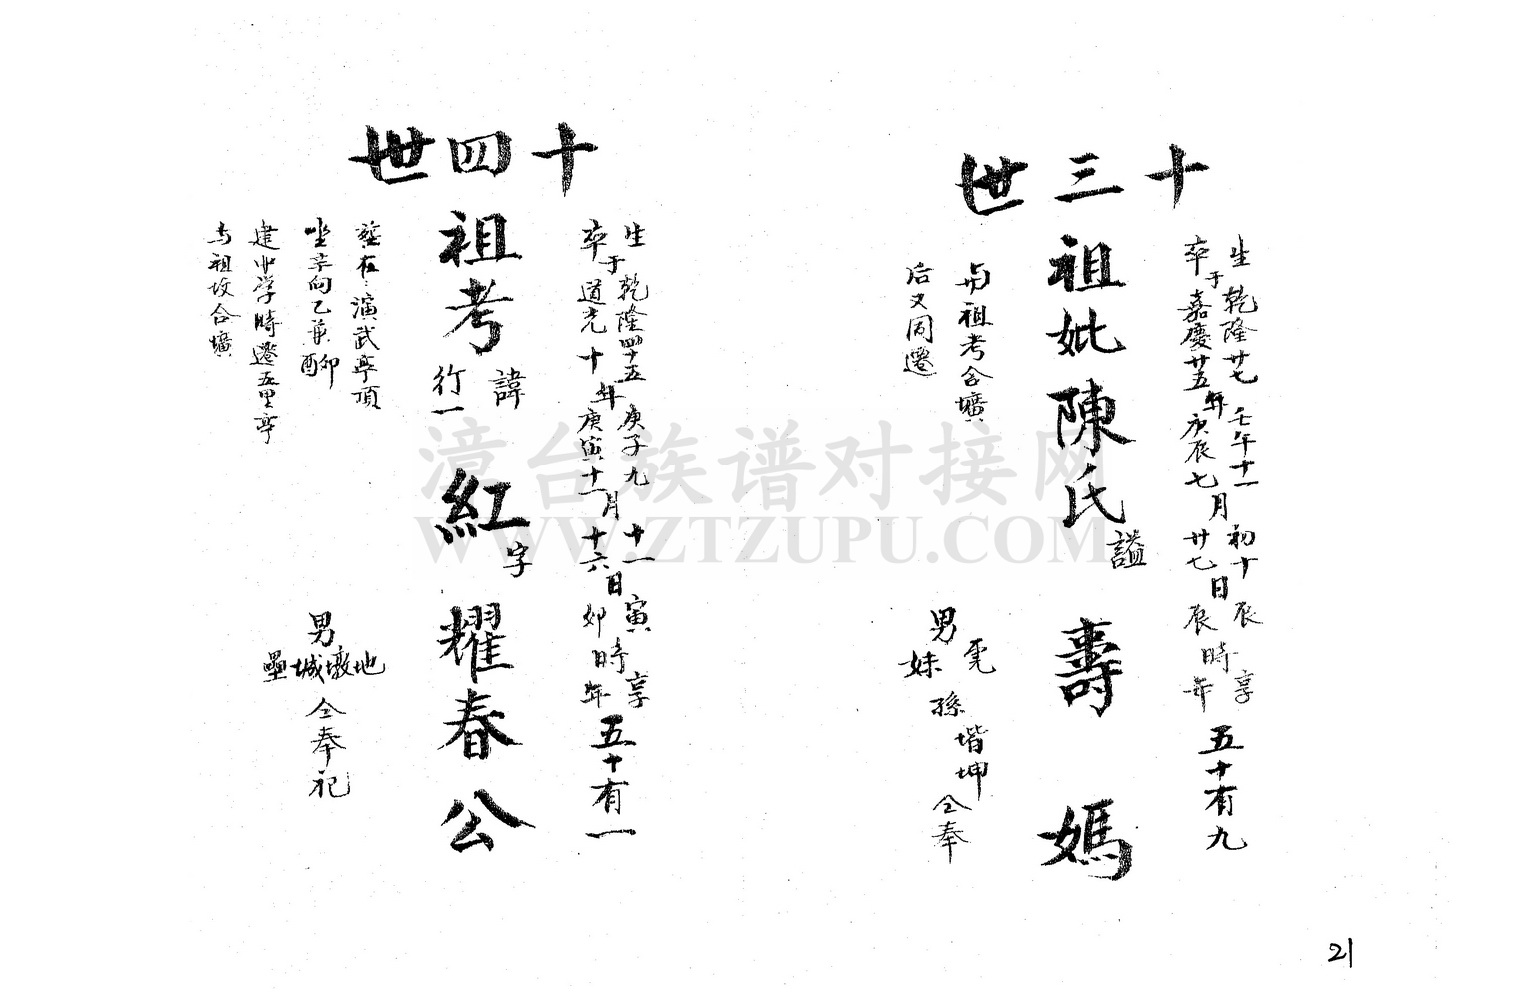 十三世
生乾隆廿七壬午十一初十辰享
于年月日時五十有九
卒嘉慶廿五庚辰七廿七辰年
祖妣陳氏謚壽媽
与祖考合壙
后又同遷
男妹孫堦坤仝奉
十四世
生乾隆四十五庚子九十一寅享
于年月日時五十有一
卒道光十庚寅十一十六卯年
祖考諱行一紅字耀春公
葬在演武亭頂
坐辛向乙兼酉卯
建中学時遷五里亭
与祖坟合壙
男地墩城壘仝奉祀
漳台族谱对接网
WWW.ZTZUPU.COM
21